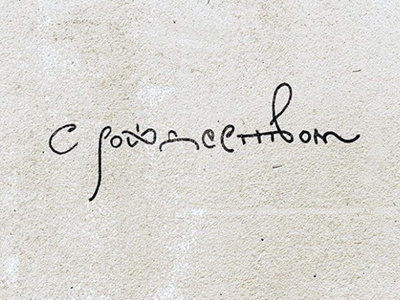 с рождеством